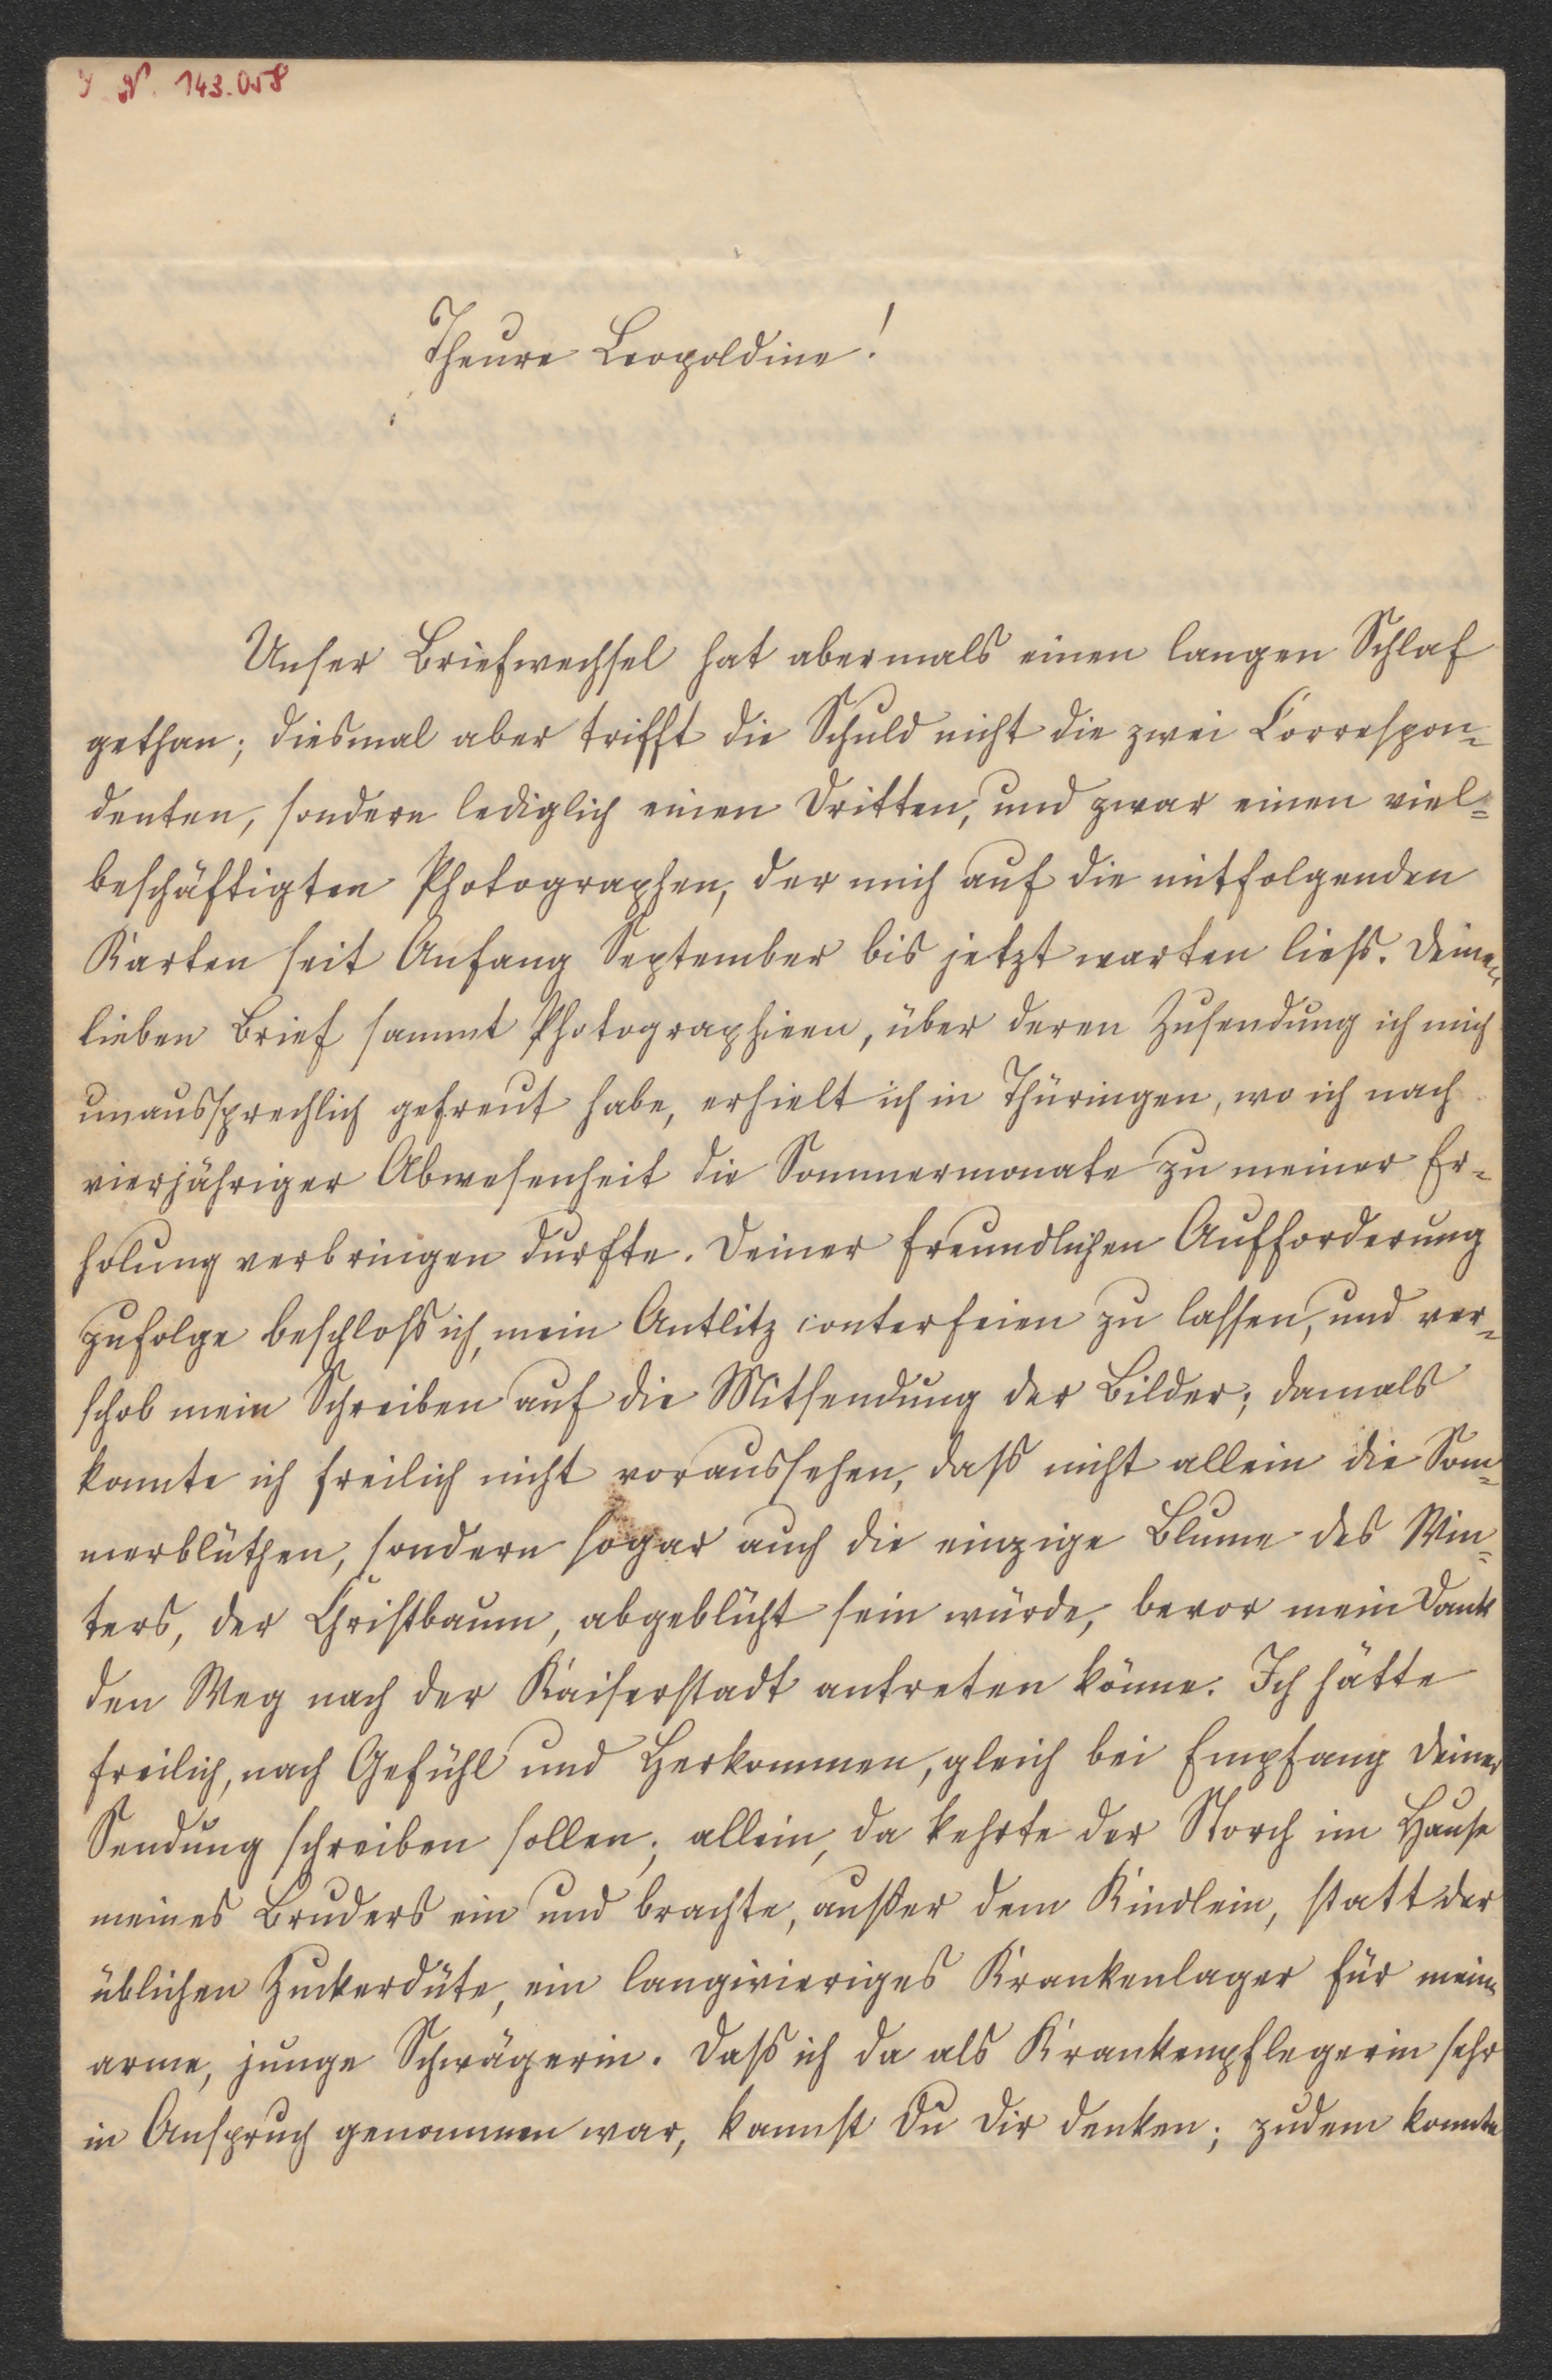 J. N. 143.058
Theure Leopoldine!
Unser Briefwechsel hat abermals einen langen Schlaf
gethan; diesmal aber trifft die Schuld nicht die zwei Correspon-
denten, sondern lediglich einen Dritten, und zwar einen viel-
beschäftigten Photographen, der mich auf die mitfolgenden
Karten seit Anfang September bis jetzt warten ließ. Deinen
lieben Brief sammt Photographieen, über deren Zusendung ich mich
unaussprechlich gefreut habe, erhielt ich in Thüringen, wo ich nach
vierjähriger Abwesenheit die Sommermonate zu meiner Er-
holung verbringen durfte. Deiner freundlichen Aufforderung
zufolge beschloß ich, mein Antlitz conterfeien zu lassen, und ver-
schob mein Schreiben auf die Mitsendung der Bilder; damals
konnte ich freilich nicht voraussehen, daß nicht allein die Som-
merblüthen, sondern sogar auch die einzige Blume des Win-
ters, der Christbaum, abgeblüht sein würde, bevor mein Dank
den Weg nach der Kaiserstadt antreten könne. Ich hätte
freilich, nach Gefühl und Herkommen, gleich bei Empfang Deiner
Sendung schreiben sollen; allein, da kehrte der Storch im Hause
meines Bruders ein und brachte, außer dem Kindlein, statt der
üblichen Zuckerdüte, ein langwieriges Krankenlager für meine
arme, junge Schwägerin. Daß ich da als Krankenpflegerin sehr
in Anspruch genommen war, kannst Du Dir denken; zudem konnte